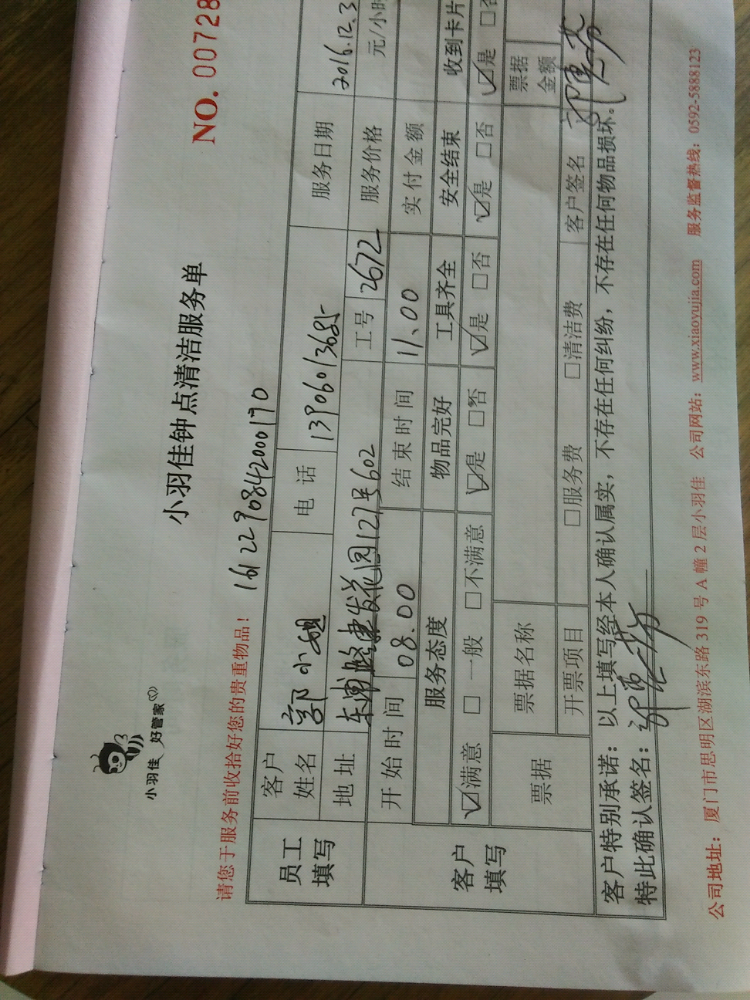 小羽佳 好管家
小羽佳钟点清洁服务单
NO. 00728
请您于服务前收拾好您的贵重物品！ 161229084200170
员工填写 客户姓名 郭小姐 电话 13906013685 服务日期 2016.12.3
地址 127号602 工号 2672 服务价格 元/小时
开始时间 08.00 结束时间 11.00 实付金额
客户填写 服务态度 物品完好 工具齐全 安全结束 收到卡片
☑满意 □一般 □不满意 ☑是 □否 ☑是 □否 ☑是 □否 ☑是 □否
票据 票据名称 票据金额
开票项目 □服务费 □清洁费 客户签名
客户特别承诺：以上填写经本人确认属实，不存在任何纠纷，不存在任何物品损坏。
特此确认签名：
公司地址：厦门市思明区湖滨东路 319 号 A 幢 2 层小羽佳 公司网站：www.xiaoyujia.com 服务监督热线：0592-5888123